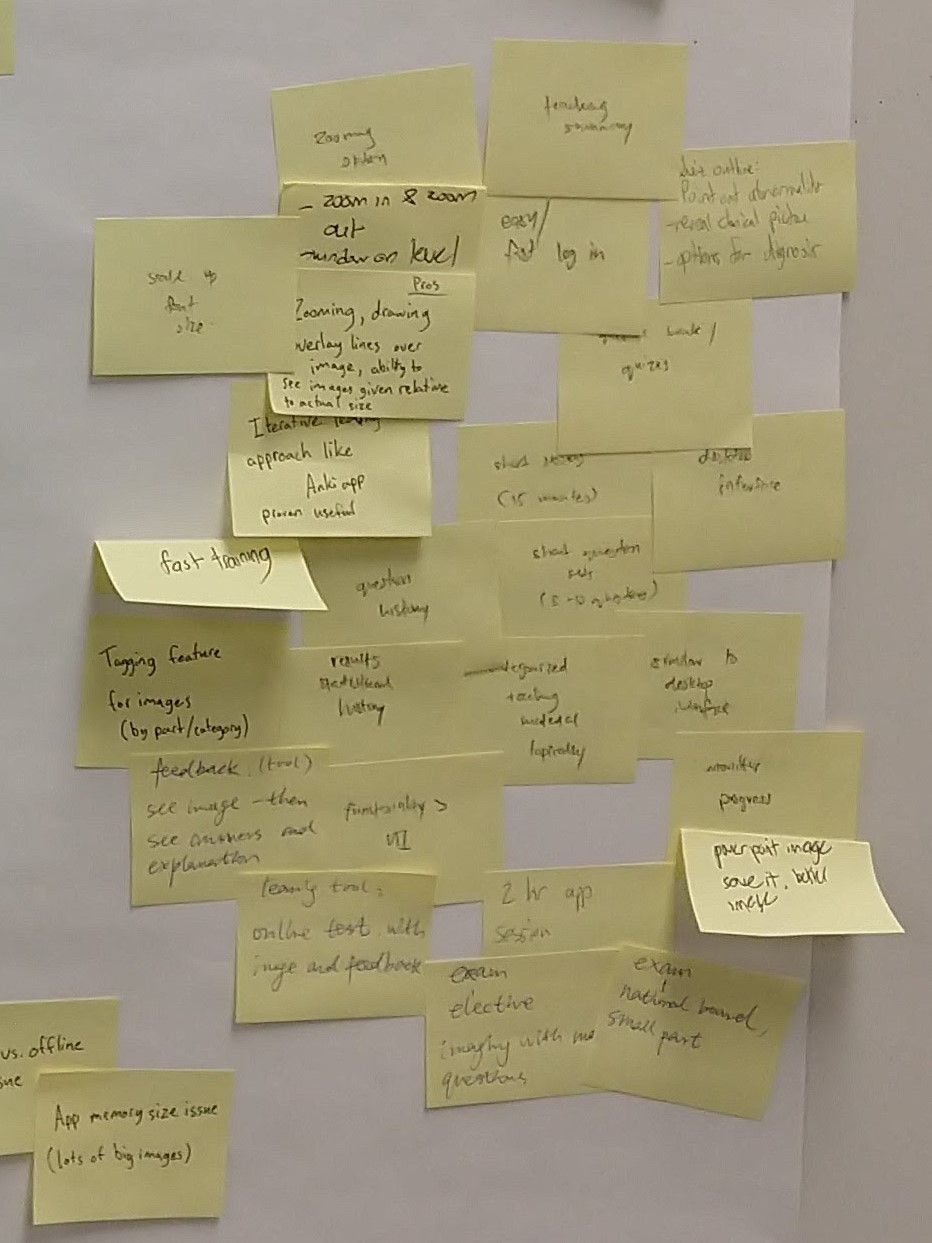 zooming
option
teaching
summary
- zoom in & zoom
out
level
outline:
Point out abnormality
- reveal clinical picture
- options for diagnosis
easy/
fast log in
scale up
font
size
Pros
Zooming, drawing
overlay lines over
image, ability to
see images given relative
to actual size
quizzes
Iterative
approach like
Anki app
proven useful
short
(15 minutes)
desktop
interface
fast training
question
history
short question
sets
(5-10 questions)
Tagging feature
for images
(by part/category)
results
history
categorized
teaching
material
topically
similar to
desktop
interface
feedback (tool)
see image - then
see answers and
explanation
functionality >
UI
monitor
progress
powerpoint image
save it,
image
learning tool:
online test with
image and feedback
2 hr app
session
exam
elective
with
questions
exam
national board,
small part
vs. offline
App memory size issue
(lots of big images)